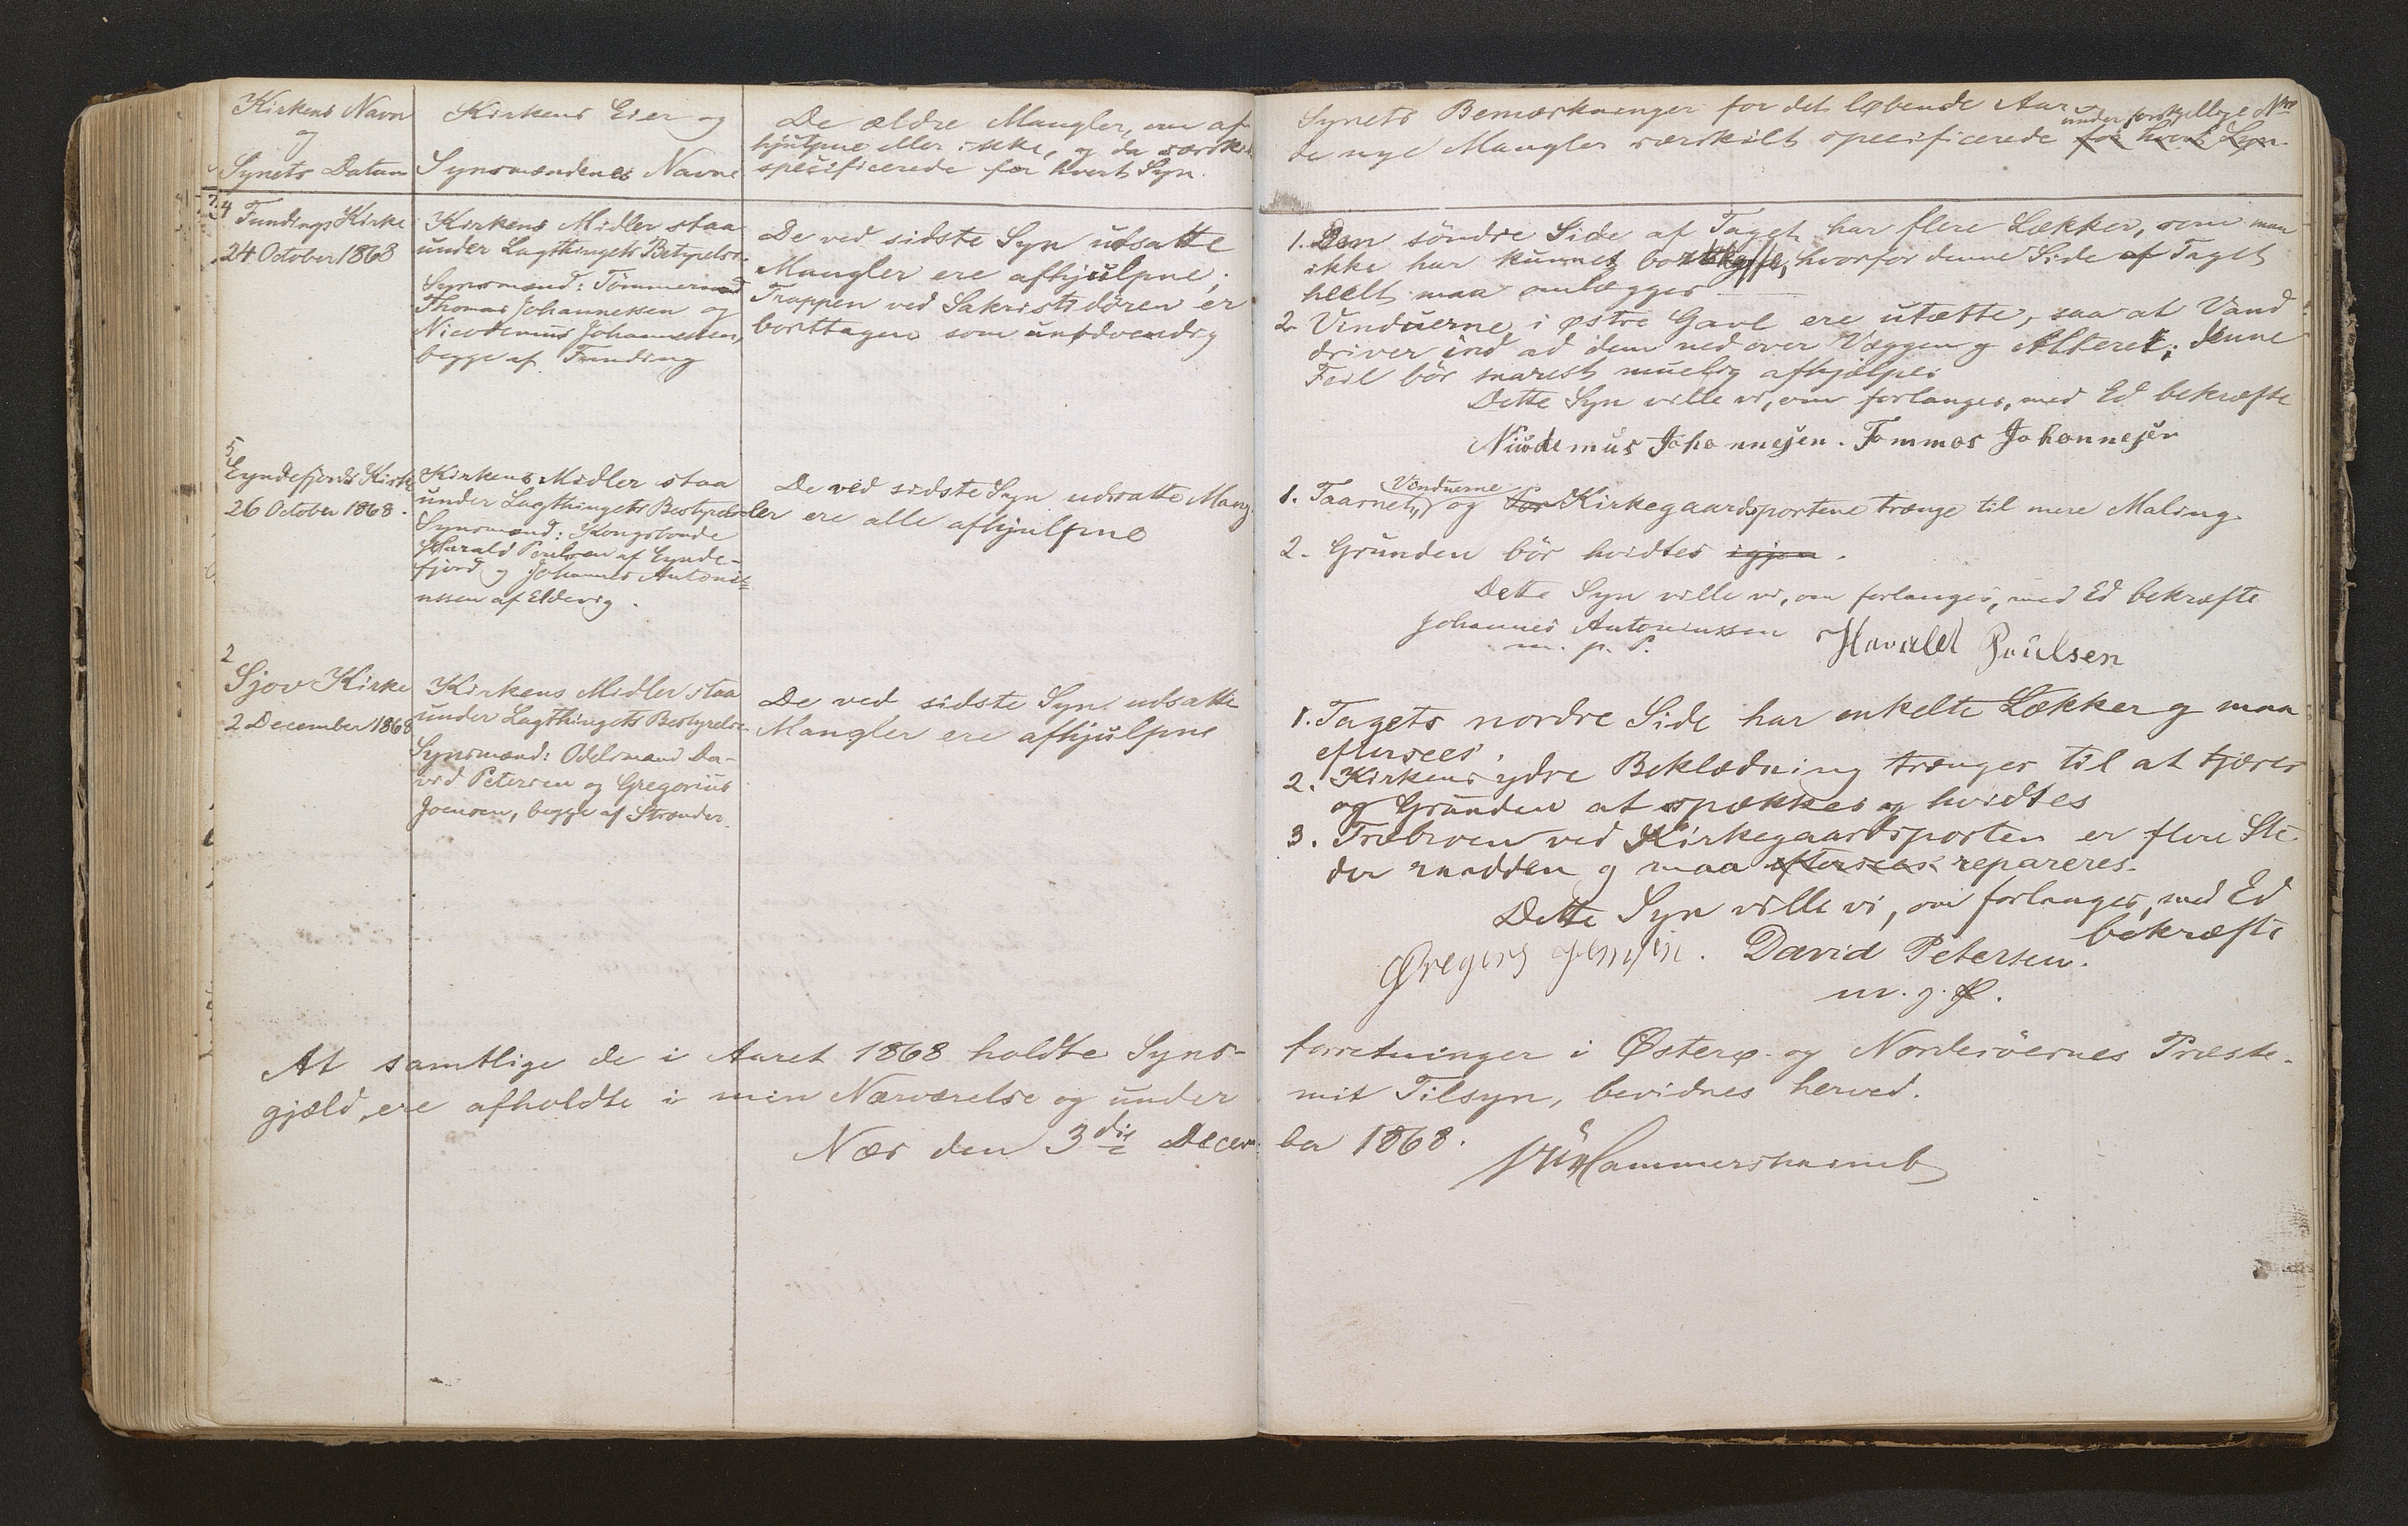 Kirkens Navn
og
Synets Datum
Kirkens Eier og
Synsmændenes Navne
De ældre Mangler, om af-
hjulpne eller ikke, og da særsk
specificerede for hvert Syn.
Synets Bemærkninger for det løbende Aar
under forskjellige Nre
de nye Mangler særskilt specificerede for hvert Syn.
4
Fundings Kirke
24 October 1868
Kirkens Midler staa
under Lagthingets Bestyrelse.
Synsmænd: Tömmermænd
Thomas Johannessen og
Nicodemus Johannessen,
begge af Funding
De ved sidste Syn udsatte
Mangler ere afhjulpne;
Trappen ved Sakristidören er
borttagen som unødvendig
1. Den söndre Side af Taget har flere Lækker, som man
ikke har kunnet bortskaffe, hvorfor denne Side af Taget
heelt maa omlægges
2. Vinduerne i østre Gavl ere utætte, saa at Vand
driver ind ad dem ned over Væggen og Alteret; denne
Feil bör snarest muelig afhjælpes
Dette Syn ville vi, om forlanges, med Ed bekræfte
Nicodemus Johannesen. Tommas Johannesen
5
Eyndefjords Kirke
26 October 1868.
Kirkens Midler staa
under Lagthingets Bestyrelse
Synsmænd: Kongsbonde
Harald Poulsen af Eynde-
fjord og Johannes Antoni-
ussen af Eldevig.
De ved sidste Syn udsatte Mang-
ler ere alle afhjulpne
Vinduerne
1. Taarnet, og Kirkegaardsportene trænge til mere Maling.
2. Grunden bör hvidtes igjen.
Dette Syn ville vi, om forlanges, med Ed bekræfte
Johannes Antoniussen Harald Poulsen
m. p. P.
2
Sjov Kirke
2 December 1868
Kirkens Midler staa
under Lagthingets Bestyrelse.
Synsmænd: Odelsmænd Da-
vid Petersen og Gregorius
Joensen, begge af Strænder.
De ved sidste Syn udsatte
Mangler ere afhjulpne
1. Tagets nordre Side har enkelte Lækker og maa
eftersees.
2. Kirkens ydre Beklædning trænger til at tjæres
og Grunden at spækkes og hvidtes
3. Træbroen ved Kirkegaardsporten er flere Ste-
der raadden og maa eftersees repareres.
Dette Syn ville vi, om forlanges, med Ed
bekræfte
David Petersen.
At samtlige de i Aaret 1868 holdte Syns-
forretninger i Østerø- og Norderöernes Præste-
gjæld, ere afholdte i min Nærværelse og under
mit Tilsyn, bevidnes herved.
Næs den 3die Decem-
ber 1868. VUHammershaimb